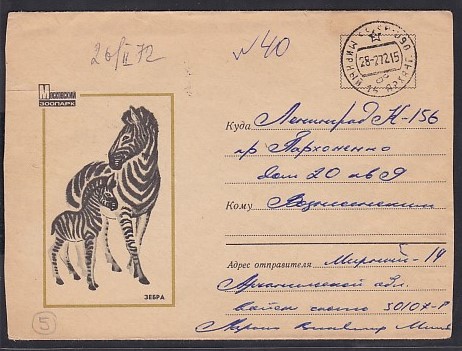 26/II 72
№40
МИРНЫЙ
28-2 72 15
Московский
ЗООПАРК
Куда Ленинград К-156
пр Пархоменко
дом 20 кв 9
Кому Вознесенским
Адрес отправителя Мирный-14
Архангельской обл.
войск
ЗЕБРА
5